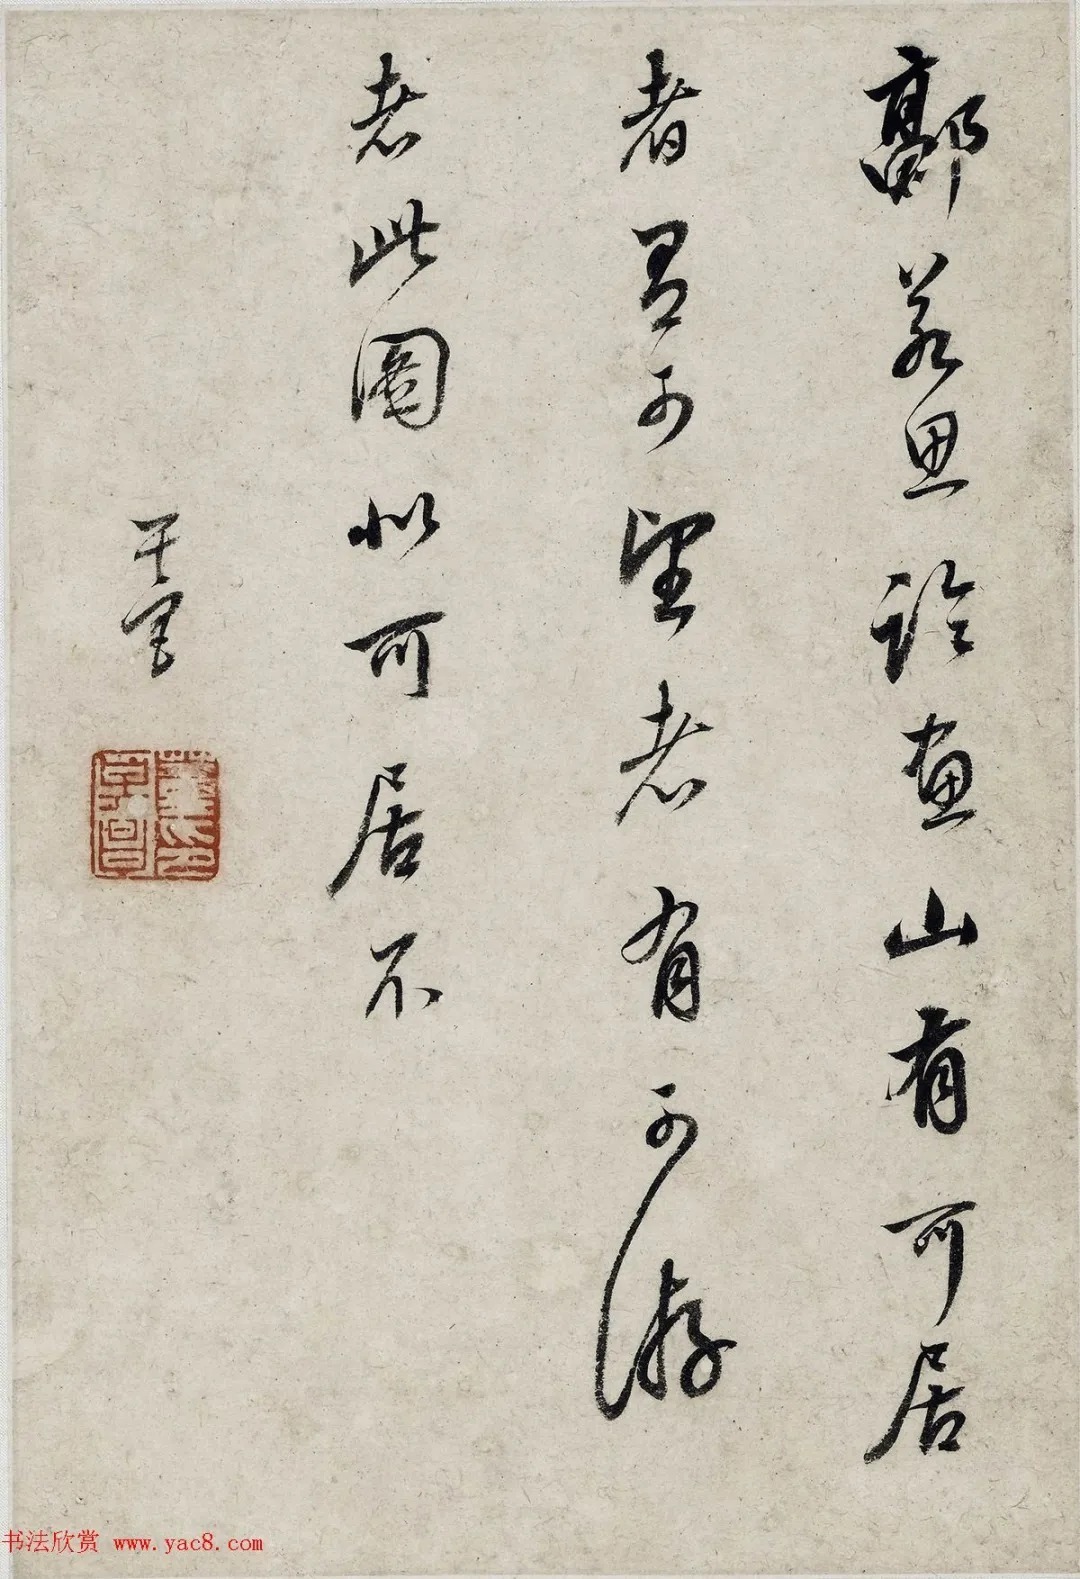 郭若思論畫山有可居
者有可望者有可游
者此圖似可居不
玄宰
書法欣赏 www.yac8.com